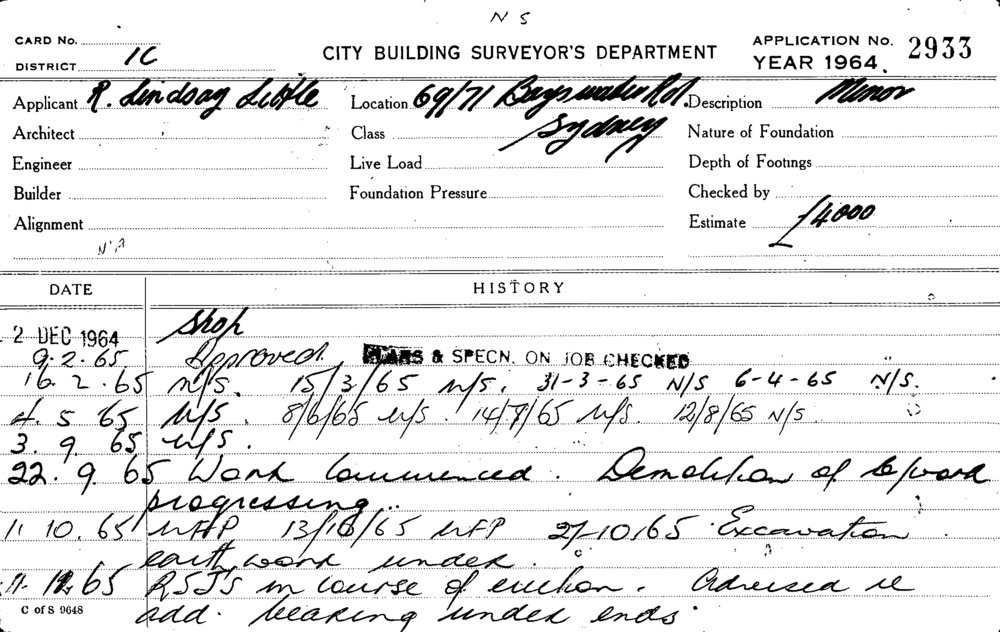 N S
CARD No.
DISTRICT 1C
CITY BUILDING SURVEYOR'S DEPARTMENT
APPLICATION No. 2933
YEAR 1964.
Applicant R. Lindsay Little Location 69/71 Bayswater Rd. Description Minor
Architect Class Sydney Nature of Foundation
Engineer Live Load Depth of Footings
Builder Foundation Pressure Checked by
Alignment Estimate £4000
DATE HISTORY
2 DEC 1964 Shop
9.2.65 Approved PLANS & SPECN. ON JOB CHECKED
16.2.65 N/S. 15/3/65 N/S. 31-3-65 N/S 6-4-65 N/S.
4.5 65 N/S. 8/6/65 N/S. 14/7/65 N/S. 12/8/65 N/S
3.9.65 N/S.
22.9.65 Work Commenced. Demolition of b/work
progressing..
11.10.65 13/10/65 27-10.65 Excavation
earth work under.
65 RSJ's in course of erection. Advised re
add. bearing under ends.
C of S 9648